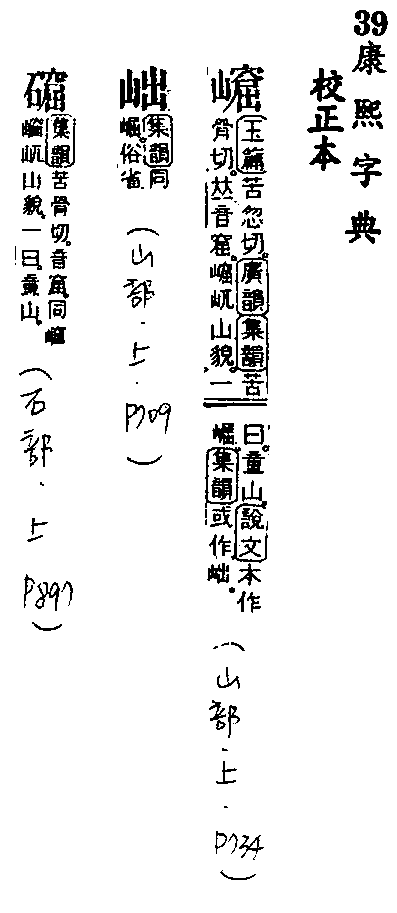 39康熙字典
校正本
玉篇苦忽切。廣韻集韻苦
骨切。𠀤音窟。屼山貌。一
曰童山。說文本作
崛。集韻或作
(山部.上.P734)
集韻同
崛俗省
(山部.上.P709)
集韻苦骨切。音窟。同
屼山貌。一曰童山。
(石部.上P897)